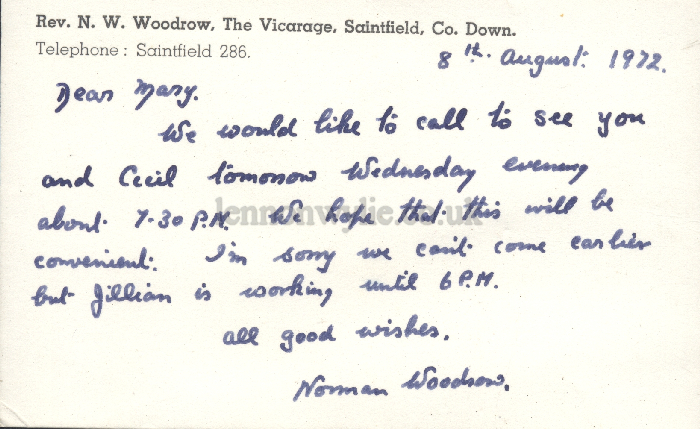 Rev. N. W. Woodrow, The Vicarage, Saintfield, Co. Down.
Telephone: Saintfield 286.
8th. August. 1972.
Dear Mary.
We would like to call to see you
and Cecil tomorrow Wednesday evening
about 7-30 P.M. We hope that this will be
lennonwylie.co.uk
convenient. I'm sorry we can't come earlier
but Jillian is working until 6 P.M.
all good wishes.
Norman Woodrow.